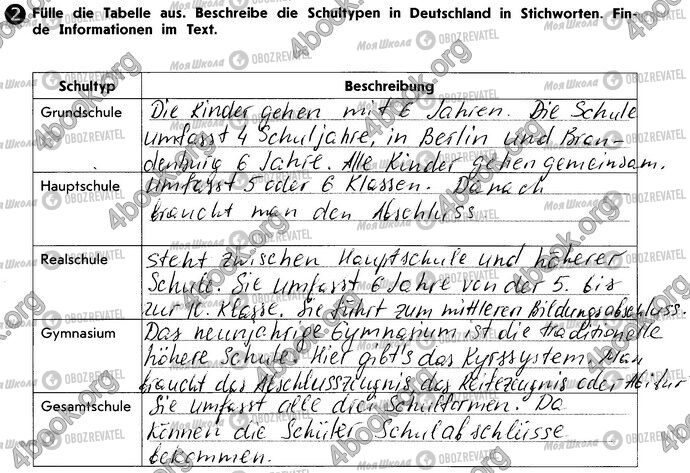 2 Fülle die Tabelle aus. Beschreibe die Schultypen in Deutschland in Stichworten. Fin-
de Informationen im Text.
Schultyp Beschreibung
Grundschule Die Kinder gehen mit 6 Jahren. Die Schule
umfasst 4 Schuljahre, in Berlin und Bran-
denburg 6 Jahre. Alle Kinder gehen gemeinsam.
Hauptschule umfasst 5 oder 6 Klassen. Danach
braucht man den Abschluss
Realschule steht zwischen Hauptschule und höherer
Schule. Sie umfasst 6 Jahre von der 5. bis
zur 10. Klasse. Sie führt zum mittleren Bildungsabschluss.
Gymnasium Das neunjährige Gymnasium ist die traditionelle
höhere Schule. Hier gibt's das Kurssystem. Man
braucht das Abschlusszeugnis, das Reifezeugnis oder Abitur
Gesamtschule Sie umfasst alle drei Schulformen. Da
können die Schüler Schulabschlüsse
bekommen.